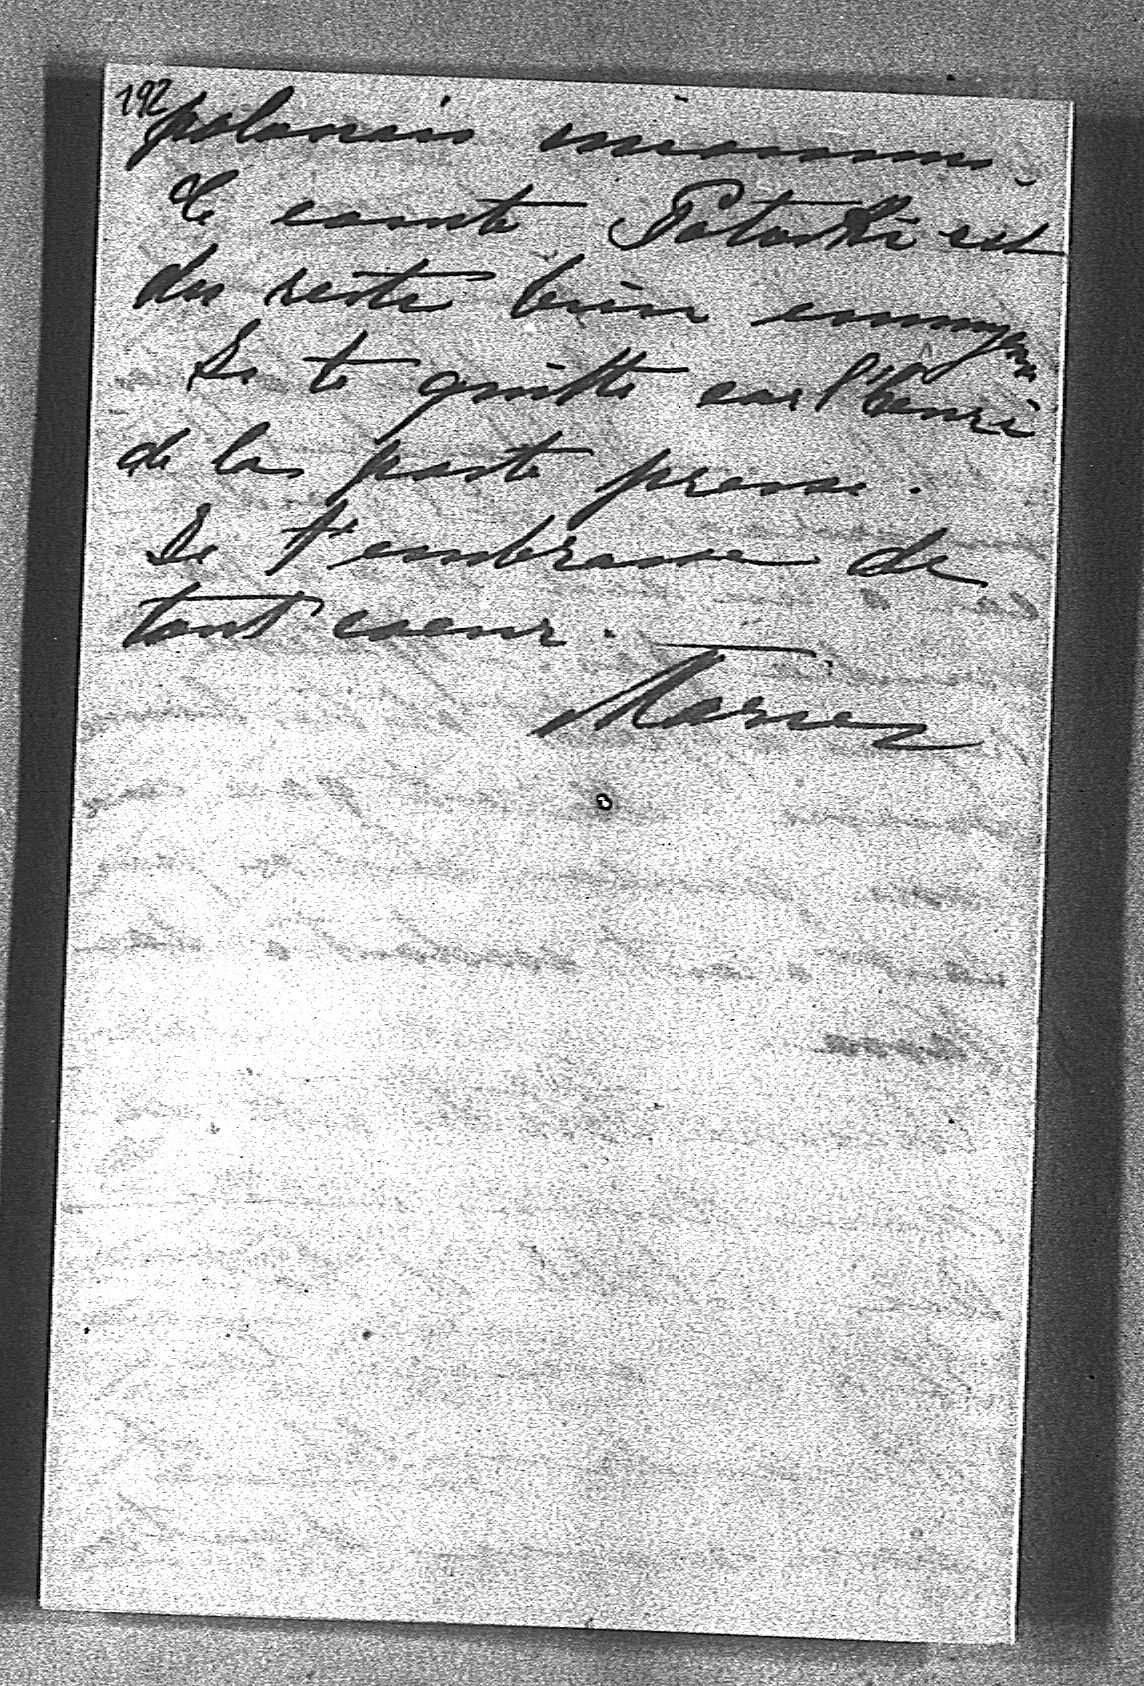 192
polonais inconnus.
Le comte Potocki est
du reste bien ennuyeux
Je te quitte car l'heure
de la poste presse.
Je t'embrasse de
tout coeur.
Marie